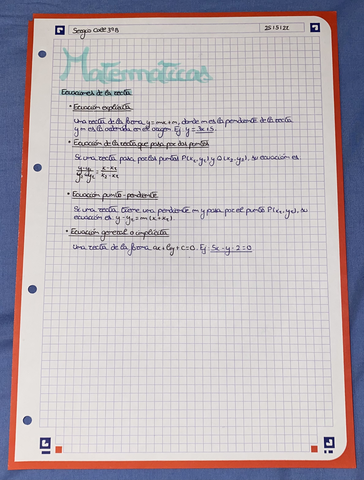 Sergio Code 3ºB
25/5/22
Matemáticas
Ecuaciones de la recta
• Ecuación explícita
Una recta de la forma y=mx+n, donde m es la pendiente de la recta
y n es la ordenada en el origen. Ej: y=3x+5.
• Ecuación de la recta que pasa por dos puntos
Si una recta pasa por los puntos P(x₁,y₁) y Q(x₂,y₂), su ecuación es
y-y₁/y₂-y₁ = x-x₁/x₂-x₁
• Ecuación punto-pendiente
Si una recta tiene una pendiente m y pasa por el punto P(x₁,y₁), su
ecuación es y-y₁=m(x+x₁).
• Ecuación general o implícita
Una recta de la forma ax+by+c=0. Ej: 5x-y-2=0